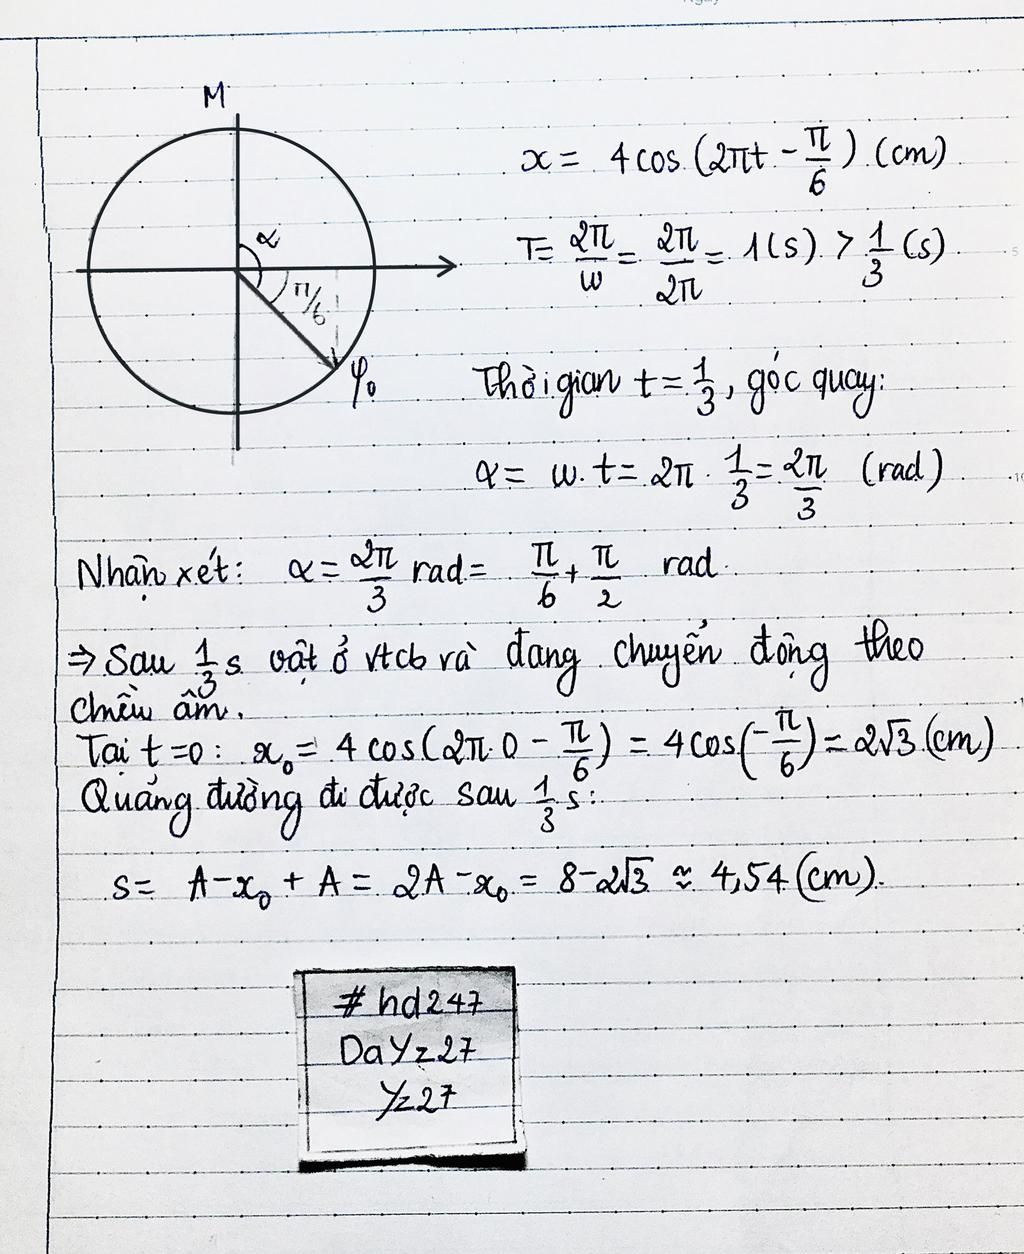 M
x = 4cos(2πt - π/6) (cm)
α
T = 2π/ω = 2π/2π = 1(s) > 1/3 (s)
π/6
φ₀
Thời gian t = 1/3, góc quay:
α = ω.t = 2π . 1/3 = 2π/3 (rad)
Nhận xét: α = 2π/3 rad = π/6 + π/2 rad.
⇒ Sau 1/3 s vật ở vtcb và đang chuyển động theo
chiều âm.
Tại t=0: x₀ = 4cos(2π.0 - π/6) = 4cos(-π/6) = 2√3 (cm)
Quãng đường đi được sau 1/3 s:
S = A - x₀ + A = 2A - x₀ = 8 - 2√3 ≈ 4,54 (cm).
#hd247
DaYz27
Yz27